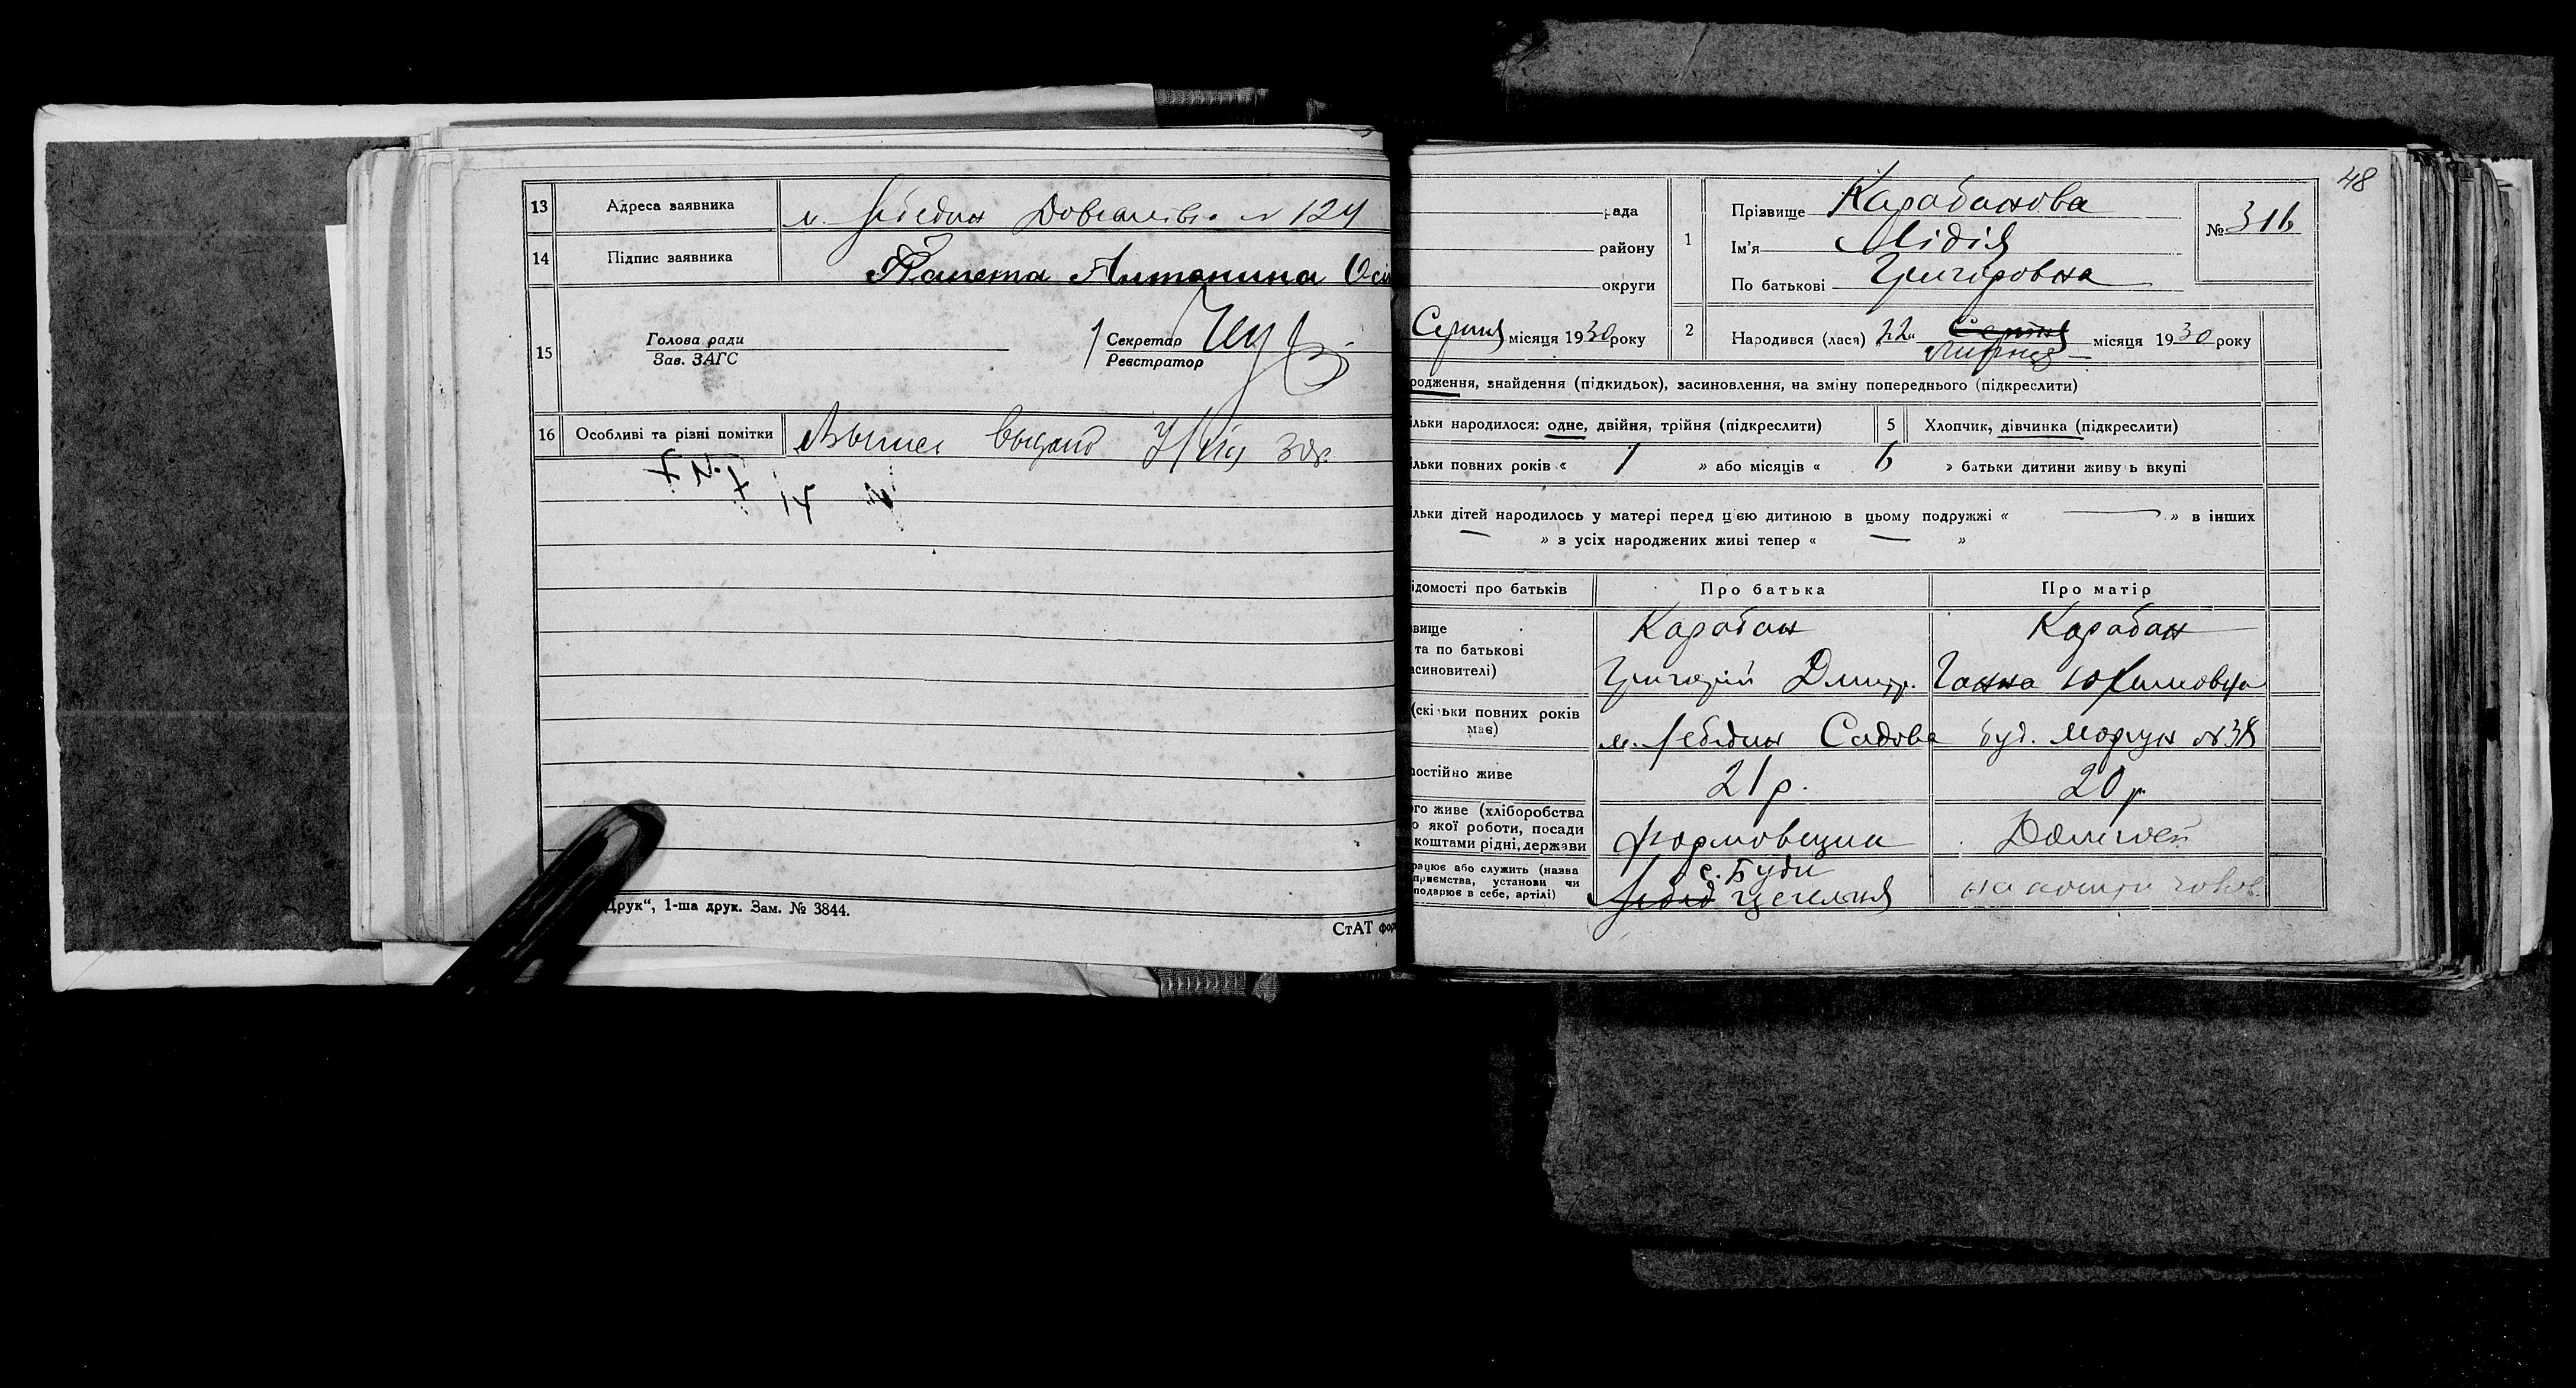 13 Адреса заявника м. Лебедин Довгалівка № 124
14 Підпис заявника Антонина
15 Голова ради
Зав. ЗАГС
Секретар
Реєстратор
16 Особливі та різні помітки
Друк“, 1-ша друк. Зам. № 3844.
СтАТ
48
рада
району
округи
1 Прізвище Карабанова
Ім'я Лідія
По батькові Григоровна
№ 316
Серпня місяця 1930 року
2 Народився (лася) „22“ Серпня місяця 1930 року
Липня
родження, знайдення (підкидьок), засиновлення, на зміну попереднього (підкреслити)
ільки народилося: одне, двійня, трійня (підкреслити)
5 Хлопчик, дівчинка (підкреслити)
ільки повних років « 1 » або місяців « 6 » батьки дитини живуь вкупі
ільки дітей народилось у матері перед цією дитиною в цьому подружжі « — » в інших
— » з усіх народжених живі тепер « — »
ідомості про батьків Про батька Про матір
звище Карабан Карабан
та по батькові
асиновителі) Григорій Дмитр. Ганна Юхимовна
(скільки повних років
має) м. Лебедин Садова буд. № 38
постійно живе 21 р. 20 р.
ого живе (хліборобства
о якої роботи, посади
коштами рідні, держави формовщик
рацює або служить (назва
приємства, установи чи
подарює в себе, артілі) с. Буди
Лебед цегельня на кошти чолов.